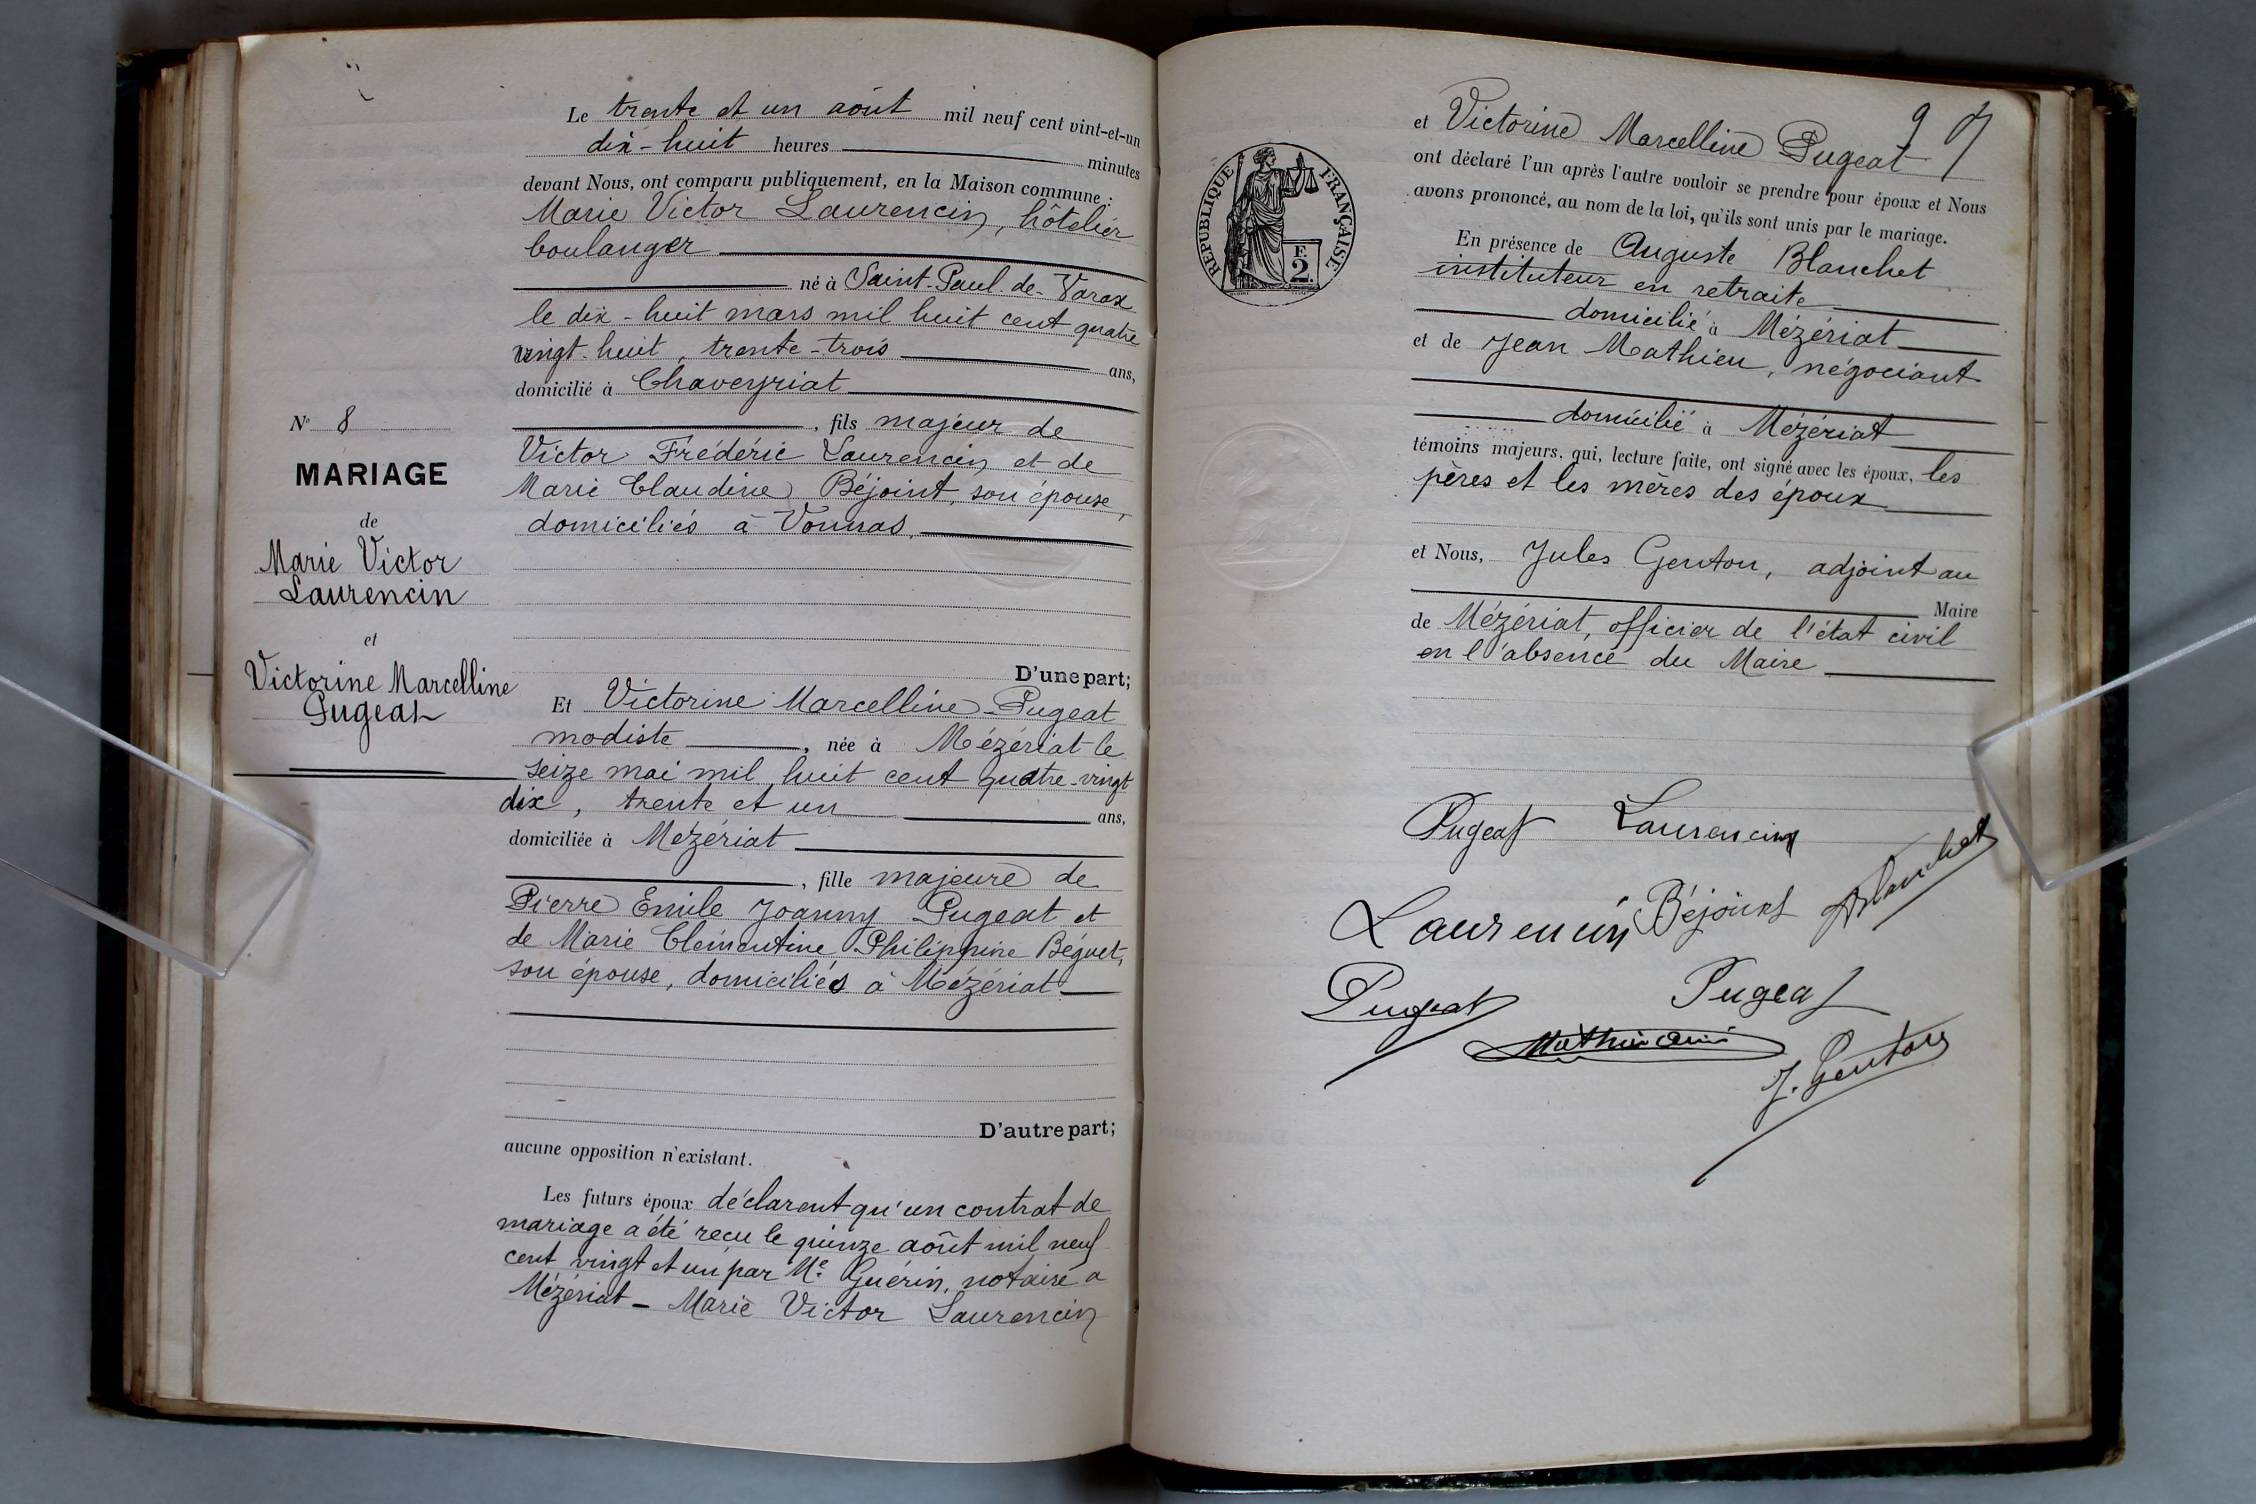 Le trente et un août mil neuf cent vint-et-un
dix-huit heures minutes
devant Nous, ont comparu publiquement, en la Maison commune :
Marie Victor Laurencin, hôtelier
boulanger
né à Saint-Paul-de-Varax
le dix-huit mars mil huit cent quatre
vingt-huit, trente-trois ans,
domicilié à Chaveyriat
, fils majeur de
Victor Frédéric Laurencin et de
Marie Claudine Béjoint, son épouse,
domiciliés à Vonnas.
D'une part;
Et Victorine Marcelline Pugeat
modiste , née à Mézériat le
seize mai mil huit cent quatre-vingt
dix, trente et un ans,
domiciliée à Mézériat
, fille majeure de
Pierre Emile Joanny Pugeat et
de Marie Clémentine Philippine Béguet,
son épouse, domiciliés à Mézériat
D'autre part;
aucune opposition n'existant.
Les futurs époux déclarent qu'un contrat de
mariage a été reçu le quinze août mil neuf
cent vingt et un par Me Guérin, notaire à
Mézériat - Marie Victor Laurencin
N° 8
MARIAGE
de
Marie Victor
Laurencin
et
Victorine Marcelline
Pugeat
9
et Victorine Marcelline Pugeat
ont déclaré l'un après l'autre vouloir se prendre pour époux et Nous
avons prononcé, au nom de la loi, qu'ils sont unis par le mariage.
En présence de Auguste Blanchet
instituteur en retraite
domicilié à Mézériat
et de Jean Mathieu, négociant
domicilié à Mézériat
témoins majeurs, qui, lecture faite, ont signé avec les époux, les
pères et les mères des époux
et Nous, Jules Genton, adjoint au
Maire
de Mézériat, officier de l'état civil
en l'absence du Maire
RÉPUBLIQUE FRANÇAISE
F.
2
Pugeat Laurencin
Laurencin Béjoint Blanchet
Pugeat Pugeat
J. Genton